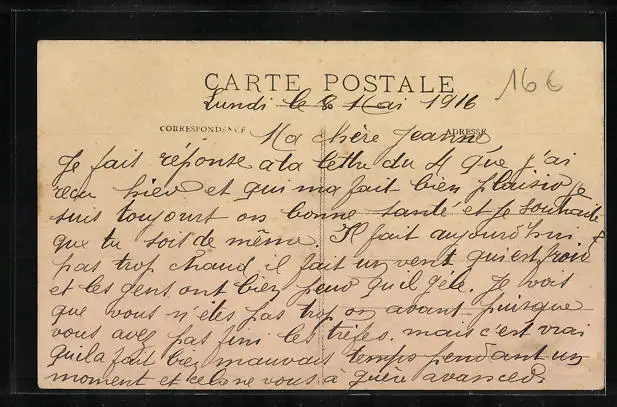 166
CARTE POSTALE
Lundi le 8 Mai 1916
CORRESPONDANCE
ADRESSE
Ma chère Jeanne
Je fait réponse a ta lettre du 4 que j'ai
recu hier et qui ma fait bien plaisir je
suis toujourt en bonne santé et je souhaite
que tu soit de même. Il fait aujourd'hui
pas trop chaud il fait un vent qui est froid
et les gens ont bien peur qu'il gèle. Je vois
que vous n'êtes pas trop en avant puisque
vous avez pas fini les trèfes. mais c'est vrai
qu'il a fait bien mauvais temps pendant un
moment et cela ne vous à guère avancer.